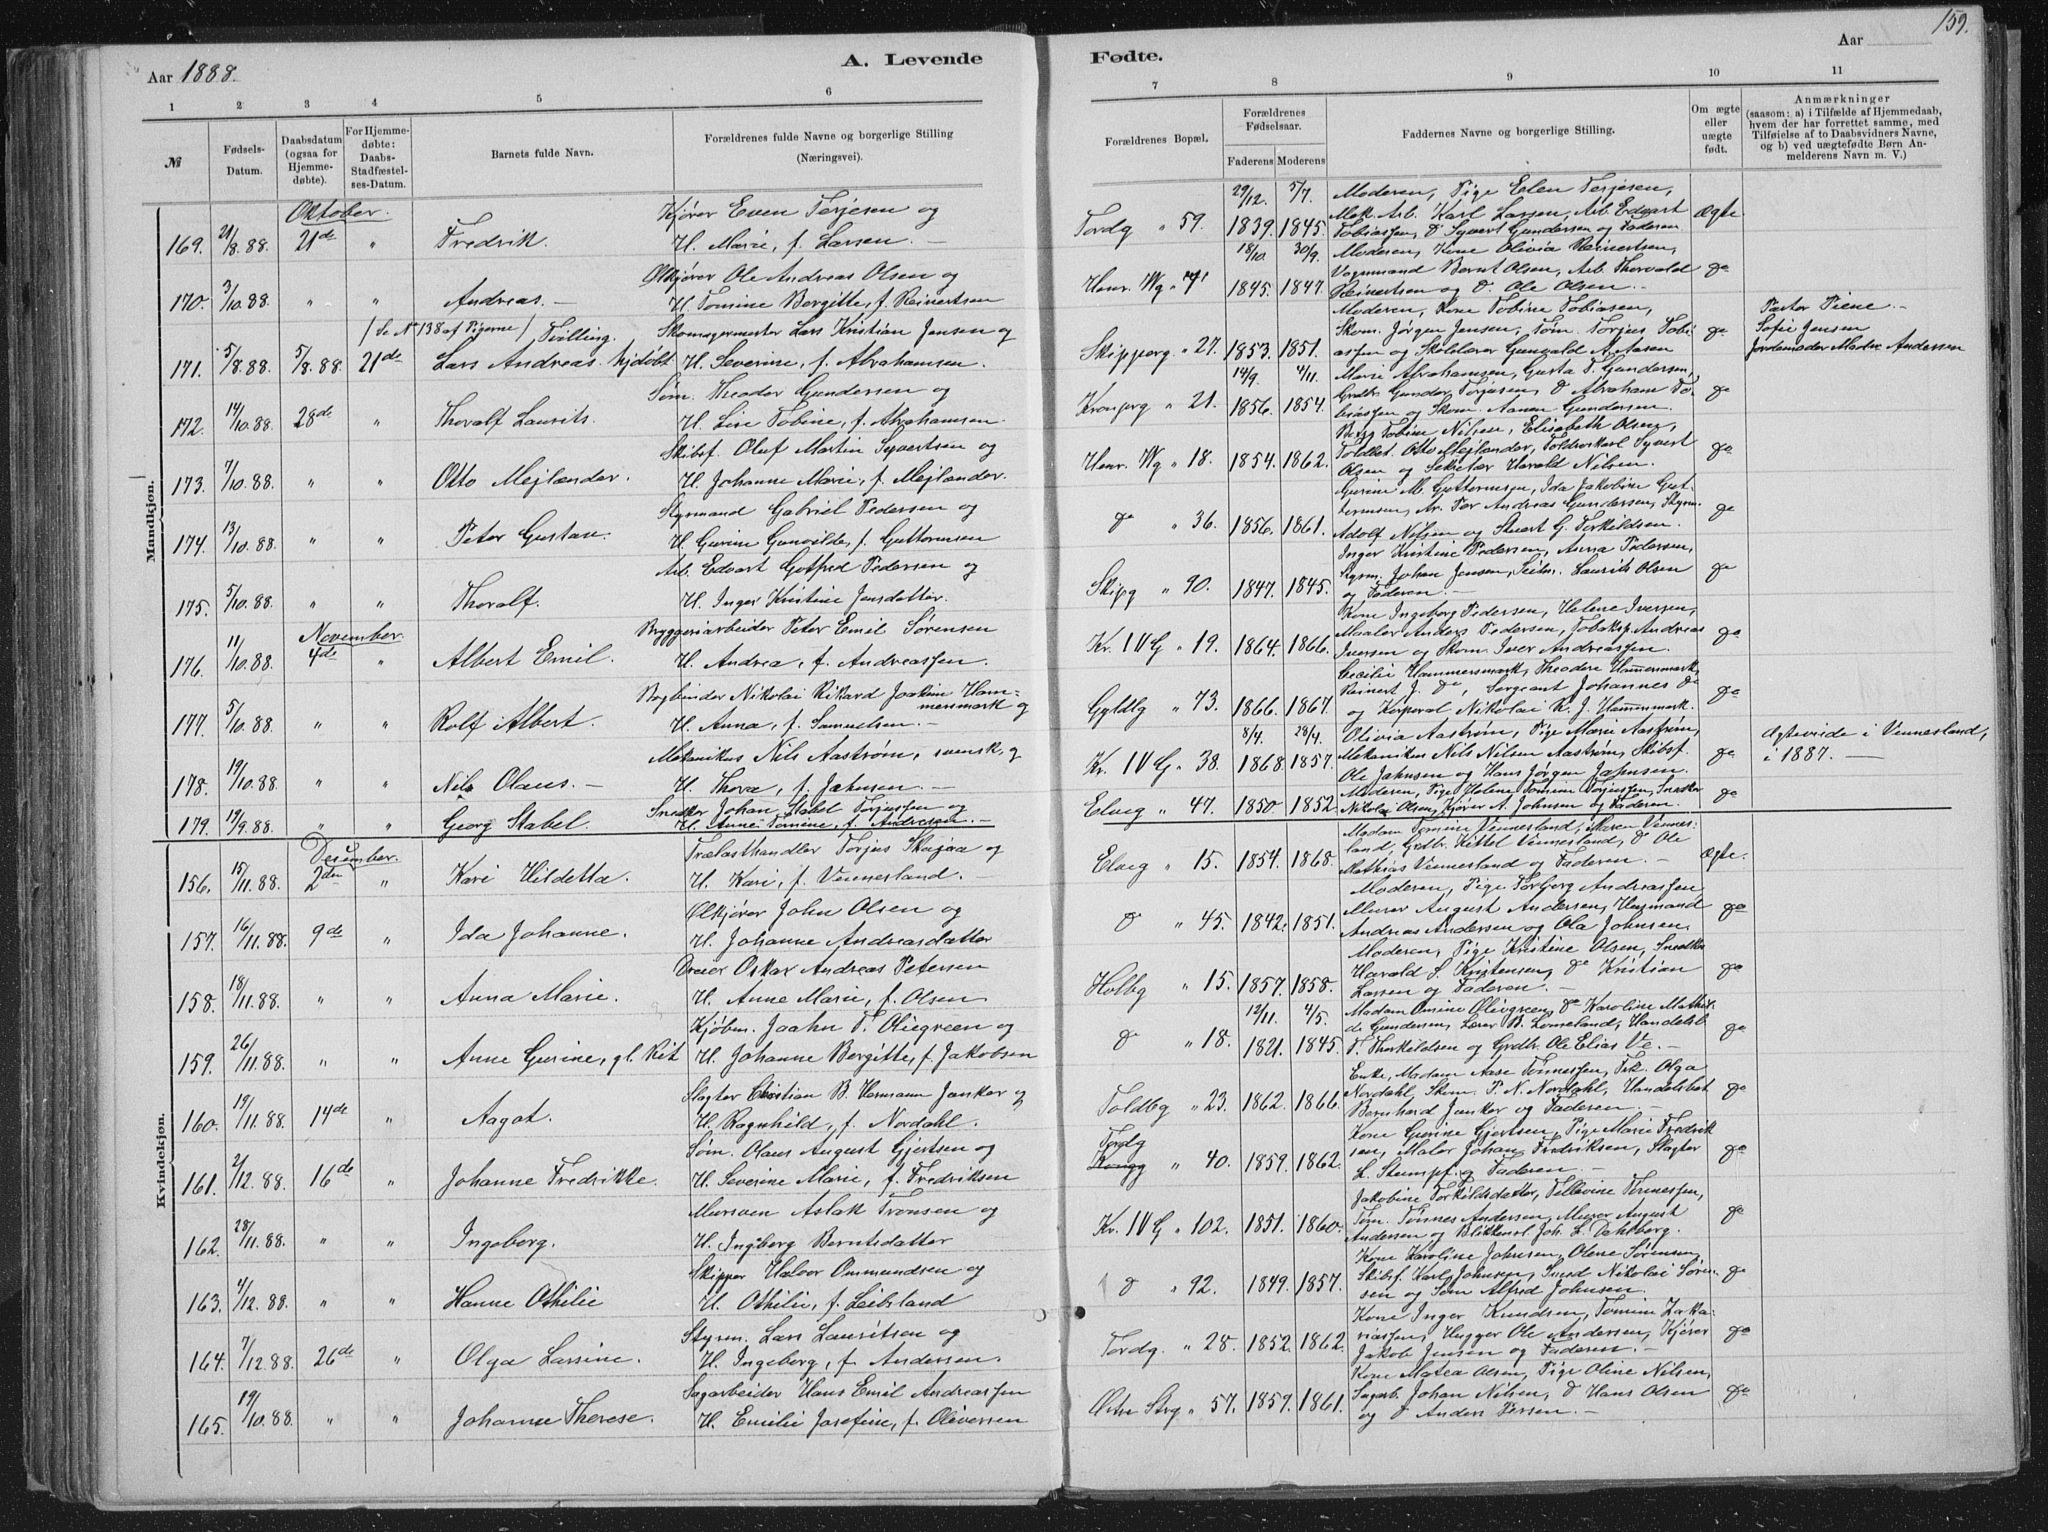 159.
Aar 1888.
A. Levende
Fødte.
Aar
1 2 3 4 5 6
7 8 9 10 11
№
Fødsels-Datum.
Daabsdatum (ogsaa for Hjemmedøbte).
For Hjemmedøbte: Daabs-Stadfæstelses-Datum.
Barnets fulde Navn.
Forældrenes fulde Navne og borgerlige Stilling (Næringsvei).
Forældrenes Bopæl.
Forældrenes Fødselsaar.
Faderens Moderens
Faddernes Navne og borgerlige Stilling.
Om ægte eller uægte født.
Anmærkninger (saasom: a) i Tilfælde af Hjemmedaab, hvem der har forrettet samme, med Tilføielse af to Daabsvidners Navne, og b) ved uægtefødte Børn Anmelderens Navn m. V.)
Mandkjøn.
Oktober.
Kjører Even Terjesen og
29/12. 5/7. Moderen, Pige Elen Terjesen,
Mek. Arb. Karl Larsen, Arb. Edvart
169. 21/8.88. 21de " Fredrik. H. Marie, f. Larsen. —
Tordg " 59. 1839. 1845. Tobiassen, d Syvert Gundersen og Faderen Ægte
Ølkjører Ole Andreas Olsen og
18/10 30/9. Moderen, Kone Olivia Reinertsen,
Vognmand Bernt Olsen, Arb. Thorvald
170. 3/10.88. " " Andreas. — H. Tomine Bergitte, f. Reinertsen
Henr. Wg " 71 1845. 1847. Reinertsen og d. Ole Olsen. — do
(Se No 138 af Pigerne) Tvilling.
Skomagermester Lars Kristian Jensen og
Moderen, Kone Tobine Tobiasen,
Skom. Jörgen Jensen, Töm. Torjus Tobi-
Pastor Piene —
Sofie Jensen
171. 5/8.88. 5/8.88 21de Lars Andreas. hjdøbt H. Severine, f. Abrahamsen.
Skipperg. " 27. 1853. 1851. assen og Skolelærer Gunvald A. Aasen do Jordemoder Madm Andersen
Søm. Theodor Gundersen og
14/9. 4/11. Marie Abrahamsen, Gusta T. Gundersen,
Grdb. Gunder Torjusen, d Abraham To-
172. 14/10.88. 28de " Thoralf Laurits. H. Lise Tobine, f. Abrahamsen.
Kronprg " 21. 1856. 1854. biassen og Skom. Aanen Gundersen. do
Skibsf. Oluf Martin Syvertsen og
Berg Tobine Nilsen, Elisabeth Olsen,
Toldbet. Otto Mejlænder, Toldroskarl Syvert
173. 7/10.88. " " Otto Mejlænder. H. Johanne Marie, f. Mejlænder.
Henr. Wg " 18. 1854. 1862. Olsen og Sekretær Harald Nilsen. do
Styrmand Gabriel Pedersen og
Gurine M. Guttormsen, Ida Jakobine Gut-
tormsen, Ar. Per Andreas Gundersen, Styrm.
174. 13/10.88. " " Peter Gustav. H. Gurine Gunvilde, f. Guttormsen
do " 36. 1856. 1861. Adolf Nilsen og Stuert G. Torkildsen. do
Arb. Edvart Gotfred Pedersen og
Inger Kristine Pedersen, Anna Pedersen,
Styrm. Johan Jensen, Seilm. Laurits Olsen
175. 5/10.88. " " Thoralf. H. Inger Kristine Jensdatter.
Skipg " 90. 1847. 1845. og Faderen. — do
November.
Bryggeriarbeider Peter Emil Sørensen
Kone Ingeborg Pedersen, Helene Iversen,
Maaler Anders Pedersen, Tobaksp. Andreas
176. 11/10.88. 4de " Albert Emil. H. Andrea, f. Andreassen.
Kr. IV G " 19. 1864. 1866. Iversen og Skom. Iver Andreassen. do
Bogbinder Nikolai Rikard Joakim Ham-
mersmark og
Cecilie Hammersmark, Theodora Hammersmark,
Reinert J. do, Sergeant Johannes do
177. 5/10.88. " " Rolf Albert. H. Anna, f. Samuelsen. —
Gyldlg " 73. 1866. 1867. og Korporal Nikolai R. J. Hammersmark. do
Mekanikus Nils Aastrøm, svensk, og
8/4. 28/4. Olivia Aastrøm, Pige Marie Aastrøm,
Mekanikus Nils Nilsen Aastrøm, Skibsf.
Ægtevide i Vennesland,
178. 19/10.88. " " Nils Olaus. — H. Thora, f. Jahnsen. —
Kr. IV G " 38. 1868. 1857. Ole Jahnsen og Hans Jørgen Jahnsen. do i 1887. —
Snedker Johan Stabel Torjussen og
Moderen, Pige Helene Tomine Torjussen, Snedker
179. 19/9.88. " " Georg Stabel. H. Anne Tomine, f. Andresen. —
Elveg " 47. 1850. 1852. Nikolai Olsen, Kjører A. Johnsen og Faderen. do
Kvindekjøn.
Desember.
Trælasthandler Torjus Skajaa og
Madam Tomine Vennesland, Maren Vennes-
land, Grdbr. Kittel Vennesland, d Ole
156. 15/11.88. 2den " Kari Hildetta. H. Kari, f. Vennesland.
Elveg " 15. 1854. 1868. Mathias Vennesland og Faderen. — Ægte.
Ølkjører John Olsen og
Moderen, Pige Torborg Andreassen
Murer August Andersen, Husmand
157. 16/11.88. 9de " Ida Johanne. H. Johanne Andreasdatter
d " 45. 1842. 1851. Andreas Andersen og Ola Johnsen. do
Dreier Oskar Andreas Petersen
Moderen, Pige Kristine Olsen, Snedker
Harald S. Kristensen, do Kristian
158. 18/11.88. " " Anna Marie. H. Anne Marie, f. Olsen.
Holbg " 15. 1857. 1858. Larsen og Faderen. — do
Kjøbm. Jaahn T. Oliegreen og
12/11. 4/5. Madam Omine Oliegreen, do Karoline Mathil-
de Gundersen, Lærer B. Lomeland, Handelsb
159. 26/11.88. " " Anne Gurine, gl. Rit H. Johanne Bergitte, f. Jakobsen
d " 18. 1821. 1845. T. Thorkildsen og Grdbr. Ole Elias Ve. — do
Slagter Christian B. Hermann Junker og
Enke, Madam Aase Tønnessen, Frk. Olga
Nordahl, Skom. P. N. Nordahl, Handelsbet
160. 19/11.88. 14de " Aagot. H. Ragnhild, f. Nordahl.
Toldbg " 23. 1862. 1866. Bernhard Junker og Faderen. — do
Søm. Olaus August Gjertsen og
Kone Gurine Gjertsen, Pige Marie Fredrik
sen, Maler Johan Fredriksen, Slagter
161. 2/12.88. 16de " Johanne Fredrikke. H. Severine Marie, f. Fredriksen
Tordg Kongg " 40. 1859. 1862. L. Stumpf og Faderen. — do
Mursven Aslak Tronsen og
Jakobine Torkildsdatter, Tellevine Tønnessen,
Tøm. Tønnes Andersen, Murer August
162. 28/11.88. " " Ingeborg. H. Ingeborg Berntsdatter
Kr. IV G " 102. 1851. 1860. Andersen og Blikkensl. Joh. L. Dahlberg. do
Skipper Halvor Ommundsen og
Kone Karoline Johnsen, Olene Sørensen
Skibsf. Karl Johnsen, Smed Nikolai Søren-
163. 4/12.88. " " Hanne Othilie H. Othilie, f. Leibsland
d " 92. 1849. 1857. sen og Søm Alfred Johnsen. do
Styrm. Lars Lauritsen og
Kone Inger Knudsen, Tomine Zaka-
riassen, Hugger Ole Andersen, Kjører
164. 7/12.88. 26de " Olga Larsine. H. Ingeborg, f. Andersen.
Tordg. " 28. 1852. 1862. Jakob Jensen og Faderen. — do
Sagarbeider Hans Emil Andreassen
Kone Matea Olsen, Pige Oline Nilsen,
Sagarb. Johan Nilsen, d Hans Olsen
165. 19/10.88. " " Johanne Therese. H. Emilie Josefine, f. Oliversen
Østre Strg " 57. 1859. 1861. og d Anders Persen. — do